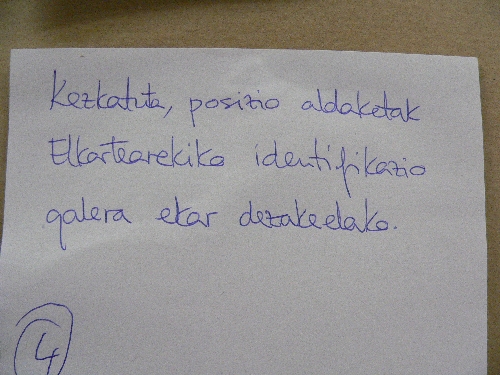 Kezkatuta, posizio aldaketak
Elkartearekiko identifikazio
galera ekar dezakeelako.
4